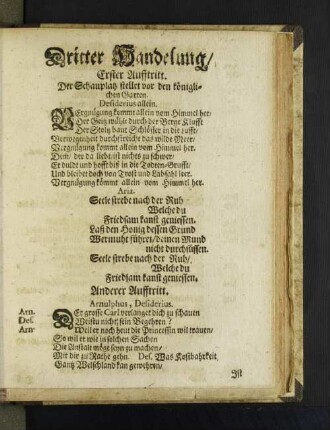 Dritter Handelung/
Erster Aufftritt.
Der Schauplatz stellet vor den königli-
chen Garten.
Desiderius allein.
VErgnügung kommt allein vom Himmel her
Der Geitz mühlt durch der Berge Klufft
Der Stoltz baut Schlösser in die Lufft/
Verwegenheit durchstreicht das wilde Meer/
Vergnügung kommt allein vom Himmel her.
Dem/ der da liebt ist nichts zu schwer/
Er duldt und hofft biß in die Todten-Grufft/
Und bleibet doch von Trost und Labsahl leer.
Vergnügung kommt allein vom Himmel her.
Aria.
Seele strebe nach der Ruh
Welche du
Friedsam kanst geniessen.
Laß den Honig dessen Grund
Wermuht führet/ deinen Mund
nicht durchsüssen.
Seele strebe nach der Ruh/
Welche du
Friedsam kanst geniessen.
Anderer Aufftritt.
Arnulphus, Desiderius.
Arn. DEr grosse Carl verlanget dich zu schauen
Des. Weistu nicht sein Begehren?
Arn. Weil er noch heut die Princeßin wil trauen/
So wil er wie in solchen Sachen
Die Anstalt möge seyn zu machen/
Mit dir zu Rathe gehn. Des. Was Kostbahrkeit
Gantz Welschland kan gewehren/
Ist